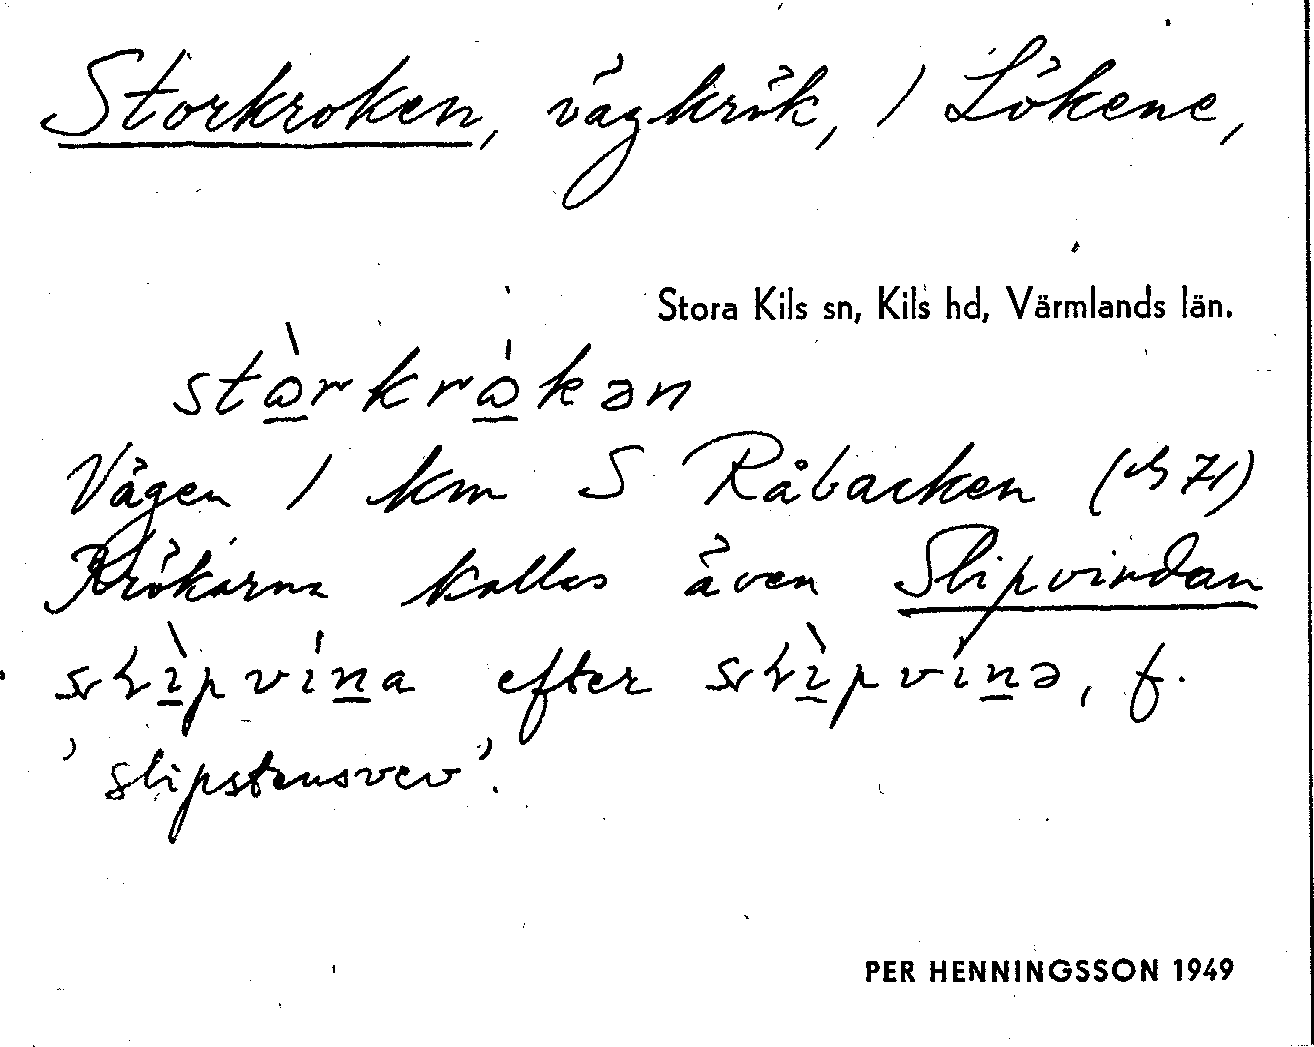 Storkroken, vägkrök, / Lökene,
Stora Kils sn, Kils hd, Värmlands län.
stòrkrókən
Vägen 1 km S Råbacken (71)
Krökarna kallas även Slipvindan
efter f.
'slipstensvev'.
PER HENNINGSSON 1949